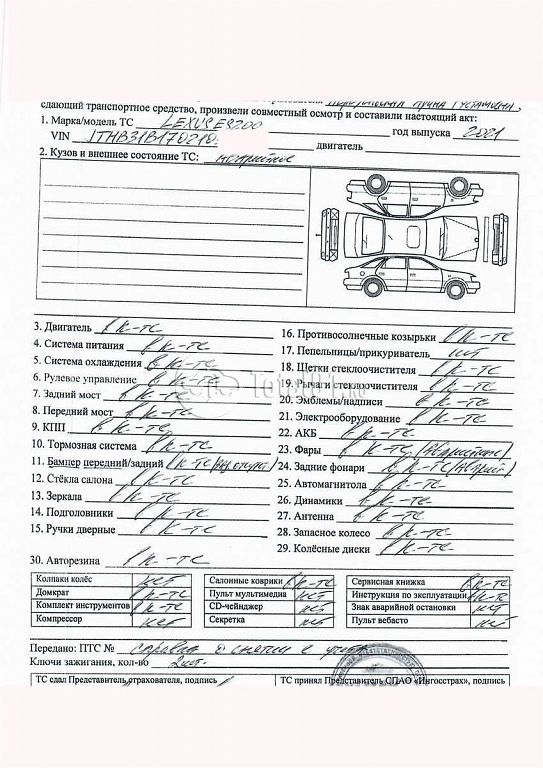 сдающий транспортное средство, произвели совместный осмотр и составили настоящий акт:
1. Марка/модель ТС LEXUS ES200 год выпуска 2021
VIN двигатель
2. Кузов и внешнее состояние ТС:
3. Двигатель в к-те
4. Система питания в к-те
5. Система охлаждения в к-те
6. Рулевое управление в к-те
7. Задний мост в к-те
8. Передний мост в к-те
9. КПП в к-те
10. Тормозная система в к-те
11. Бампер передний/задний в к-те
12. Стёкла салона в к-те
13. Зеркала в к-те
14. Подголовники в к-те
15. Ручки дверные в к-те
16. Противосолнечные козырьки в к-те
17. Пепельницы/прикуриватель
18. Щетки стеклоочистителя в к-те
19. Рычаги стеклоочистителя в к-те
20. Эмблемы/надписи в к-те
21. Электрооборудование в к-те
22. АКБ в к-те
23. Фары в к-те
24. Задние фонари в к-те
25. Автомагнитола в к-те
26. Динамики в к-те
27. Антенна в к-те
28. Запасное колесо в к-те
29. Колёсные диски в к-те
30. Авторезина в к-те
Колпаки колёс нет
Домкрат в к-те
Комплект инструментов в к-те
Компрессор нет
Салонные коврики в к-те
Пульт мультимедиа нет
CD-чейнджер нет
Секретка нет
Сервисная книжка в к-те
Инструкция по эксплуатации в к-те
Знак аварийной остановки нет
Пульт вебасто нет
Передано: ПТС № справка о снятии с учета
Ключи зажигания, кол-во 2 шт.
ТС сдал Представитель страхователя, подпись
ТС принял Представитель СПАО «Ингосстрах», подпись